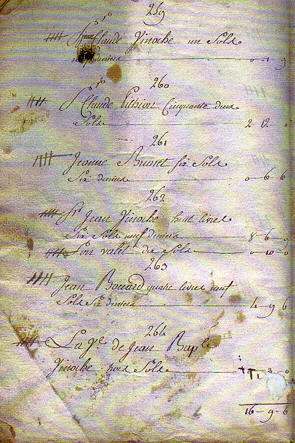 259
Sr Claude Vinoche un Sold
deniers 0 1 9
260
Sr Claude Cinquante deux
Sold 2 12 0
261
Jeanne Brunet Six Sold
Six deniers 0 6 6
262
Sr Jean Vinoche huit livres
Six Sold neuf deniers 8 6 9
Son valet dix Sold 0 10 0
263
Jean quatre livres neuf
Sold Six deniers 4 9 6
264
La Ve de Jean Bapt
Vinoche trois Sold 3 0
16-9-6